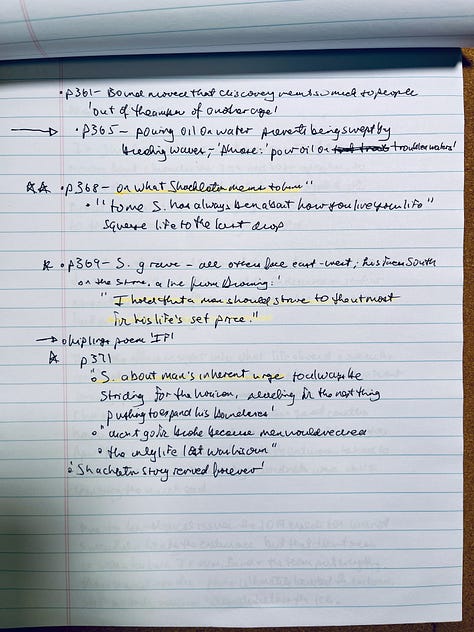 • p361 - Bound moved that discovery meant so much to people
'out of the ashes of another age'
→ • p365 - pouring oil on water prevents being swept by
breaking waves; 'phrase:' pour oil on troubled waters'
☆☆ • p368 - on what Shackleton means to him"
• "to me S. has always been about how you live your life"
squeeze life to the last drop
☆ • p369 - S. grave - all others face east-west; his faces South
on the stone, a line from Browning:'
"I hold that a man should strive to the utmost
for his life's set prize."
→ • Kipling's poem 'If'
☆ p371
• "S. about man's inherent urge to always be
striding for the horizon, needing for the next thing
pushing to expand his boundaries'
• "didn't go for broke because men would've died
• the only life lost was his own"
• 'Shackleton story served forever'